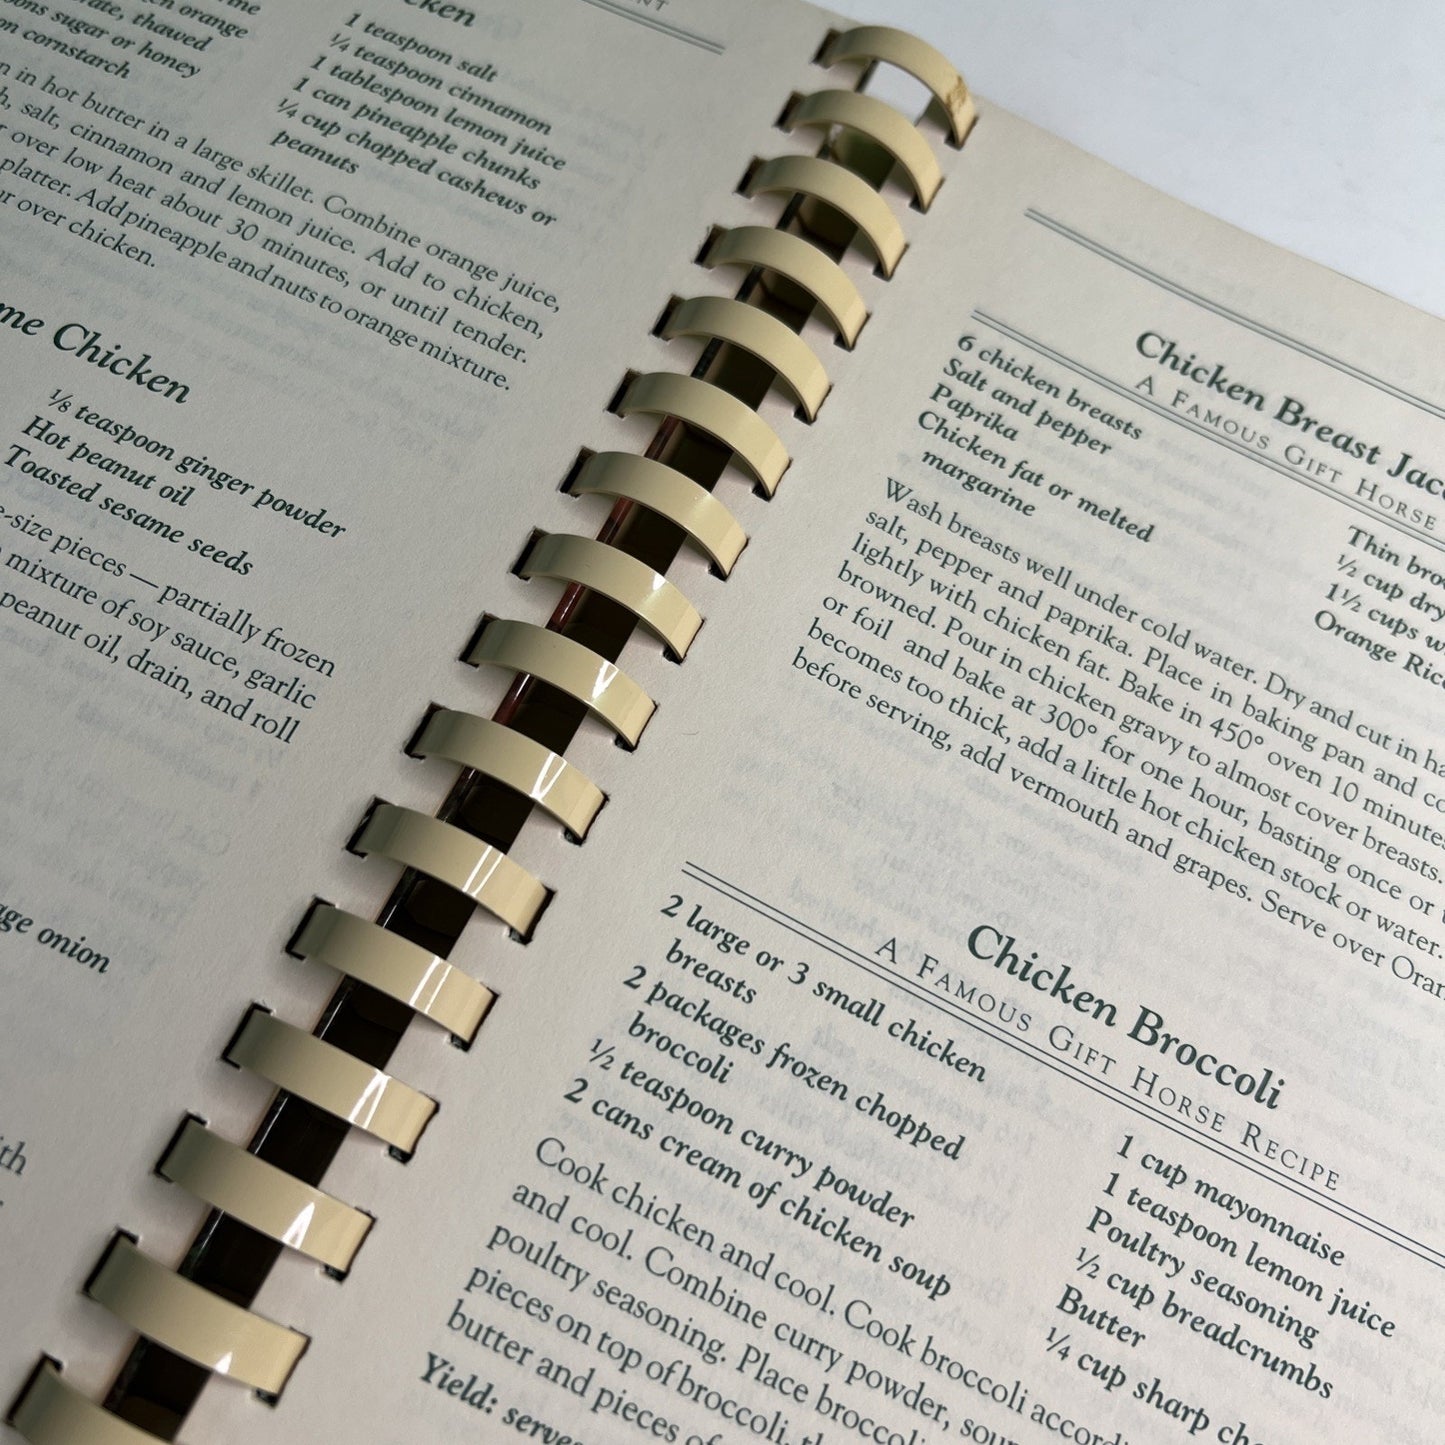 orange
thawed
sugar or honey
cornstarch
1 teaspoon salt
¼ teaspoon cinnamon
1 tablespoon lemon juice
1 can pineapple chunks
¼ cup chopped cashews or
peanuts
in hot butter in a large skillet. Combine orange juice,
salt, cinnamon and lemon juice. Add to chicken,
over low heat about 30 minutes, or until tender.
platter. Add pineapple and nuts to orange mixture.
over chicken.
Chicken
⅛ teaspoon ginger powder
Hot peanut oil
Toasted sesame seeds
-size pieces — partially frozen
mixture of soy sauce, garlic
peanut oil, drain, and roll
onion
Chicken Breast
A Famous Gift Horse
6 chicken breasts
Salt and pepper
Paprika
Chicken fat or melted
margarine
Thin
½ cup dry
1½ cups
Orange
Wash breasts well under cold water. Dry and cut in
salt, pepper and paprika. Place in baking pan and
lightly with chicken fat. Bake in 450° oven 10
browned. Pour in chicken gravy to almost cover breasts.
or foil and bake at 300° for one hour, basting once or
becomes too thick, add a little hot chicken stock or water.
before serving, add vermouth and grapes. Serve over
Chicken Broccoli
A Famous Gift Horse Recipe
2 large or 3 small chicken
breasts
2 packages frozen chopped
broccoli
½ teaspoon curry powder
2 cans cream of chicken soup
1 cup mayonnaise
1 teaspoon lemon juice
Poultry seasoning
½ cup breadcrumbs
Butter
¼ cup sharp
Cook chicken and cool. Cook broccoli
and cool. Combine curry powder,
poultry seasoning. Place
pieces on top of broccoli,
butter and pieces
Yield: